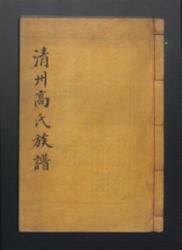 清州高氏族譜